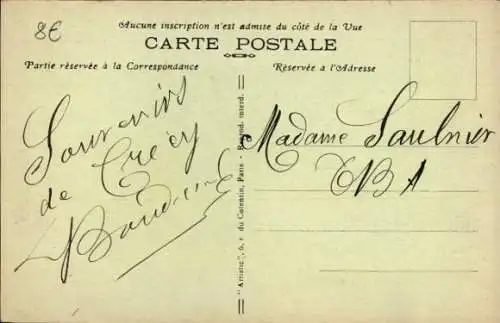 8€
Aucune inscription n'est admise du côté de la Vue
CARTE POSTALE
Partie réservée à la Correspondance
Réservée à l'Adresse
Souvenirs
de Crécy
Madame Saulnier
EBA
"Artistic", 6, r. du Cotentin, Paris - Reprod. interd.